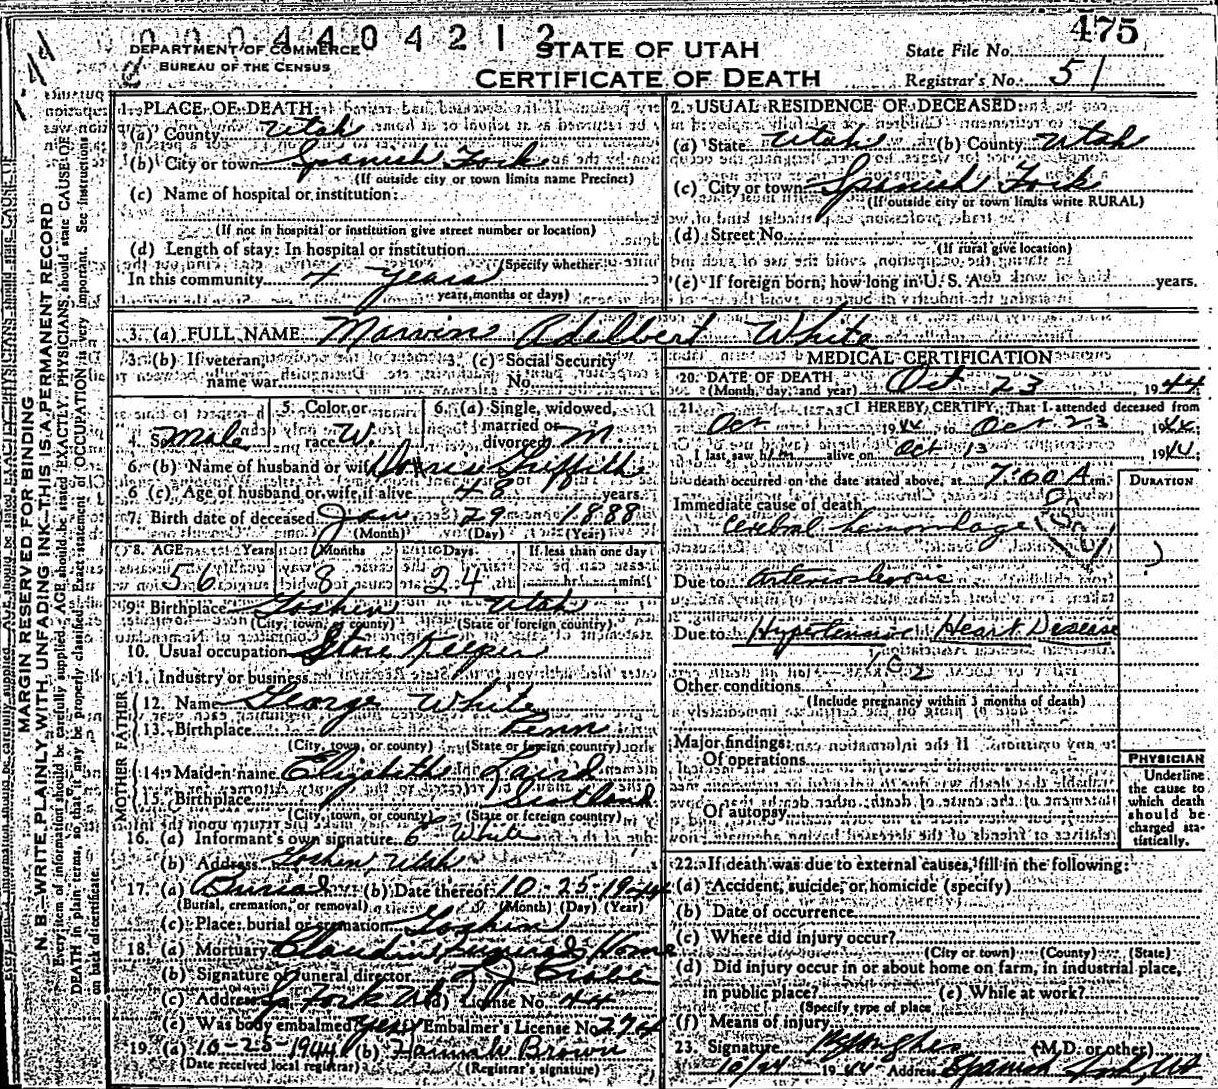 0004404212
475
DEPARTMENT OF COMMERCE
BUREAU OF THE CENSUS
STATE OF UTAH
CERTIFICATE OF DEATH
State File No.
Registrar's No. 51
MARGIN RESERVED FOR BINDING
N. B.—WRITE PLAINLY WITH UNFADING INK—THIS IS A PERMANENT RECORD
Every item of information should be carefully supplied. AGE should be stated EXACTLY. PHYSICIANS should state CAUSE OF
DEATH in plain terms, so that it may be properly classified. Exact statement of OCCUPATION is very important. See instructions
on back of certificate.
1. PLACE OF DEATH:
(a) County Utah
(b) City or town Spanish Fork
(If outside city or town limits name Precinct)
(c) Name of hospital or institution:
(If not in hospital or institution give street number or location)
(d) Length of stay: In hospital or institution
(Specify whether
In this community 4 years
years, months or days)
2. USUAL RESIDENCE OF DECEASED:
(a) State Utah (b) County Utah
(c) City or town Spanish Fork
(If outside city or town limits write RURAL)
(d) Street No.
(If rural give location)
(e) If foreign born, how long in U. S. A. years.
3. (a) FULL NAME Marvin Adelbert White
3. (b) If veteran, name war
3. (c) Social Security No.
4. Sex Male
5. Color or race W.
6. (a) Single, widowed, married or divorced M.
6. (b) Name of husband or wife Griffiths
6 (c). Age of husband or wife, if alive 48 years.
7. Birth date of deceased Jan 29 1888
(Month) (Day) (Year)
8. AGE Years Months Days If less than one day
56 8 24 hr. min.
9. Birthplace Goshen Utah
(City, town, or county) (State or foreign country)
10. Usual occupation Store Keeper
11. Industry or business
FATHER
12. Name George White
13. Birthplace Penn
(City, town, or county) (State or foreign country)
MOTHER
14. Maiden name Elizabeth Laird
15. Birthplace Scotland
(City, town, or county) (State or foreign country)
16. (a) Informant's own signature E White
(b) Address Goshen, Utah
17. (a) Burial (b) Date thereof 10-25-1944
(Burial, cremation, or removal) (Month) (Day) (Year)
(c) Place: burial or cremation Goshen
18. (a) Mortuary Claudin Funeral Home
(b) Signature of funeral director
(c) Address Sp Fork Ut (d) License No. 44
(e) Was body embalmed? yes Embalmer's License No. 274
19. (a) 10-25-1944 (b) Hannah Brown
(Date received local registrar) (Registrar's signature)
MEDICAL CERTIFICATION
20. DATE OF DEATH
(Month, day, and year) Oct 23, 1944
21. I HEREBY CERTIFY, That I attended deceased from
Oct 1944, to Oct 23 1944
I last saw him alive on Oct 13 1944;
death occurred on the date stated above, at 7:00 A.m.
DURATION
Immediate cause of death
Cerebral hemorrhage
Due to Arteriosclerosis
Due to Hypertensive Heart Disease
102
Other conditions
(Include pregnancy within 3 months of death)
Major findings:
Of operations
Of autopsy
PHYSICIAN
Underline
the cause to
which death
should be
charged sta-
tistically.
22. If death was due to external causes, fill in the following:
(a) Accident, suicide, or homicide (specify)
(b) Date of occurrence
(c) Where did injury occur?
(City or town) (County) (State)
(d) Did injury occur in or about home on farm, in industrial place,
in public place? (e) While at work?
(Specify type of place
(f) Means of injury
23. Signature Hughes (M.D. or other)
10/24 1944 Address Spanish Fork Ut